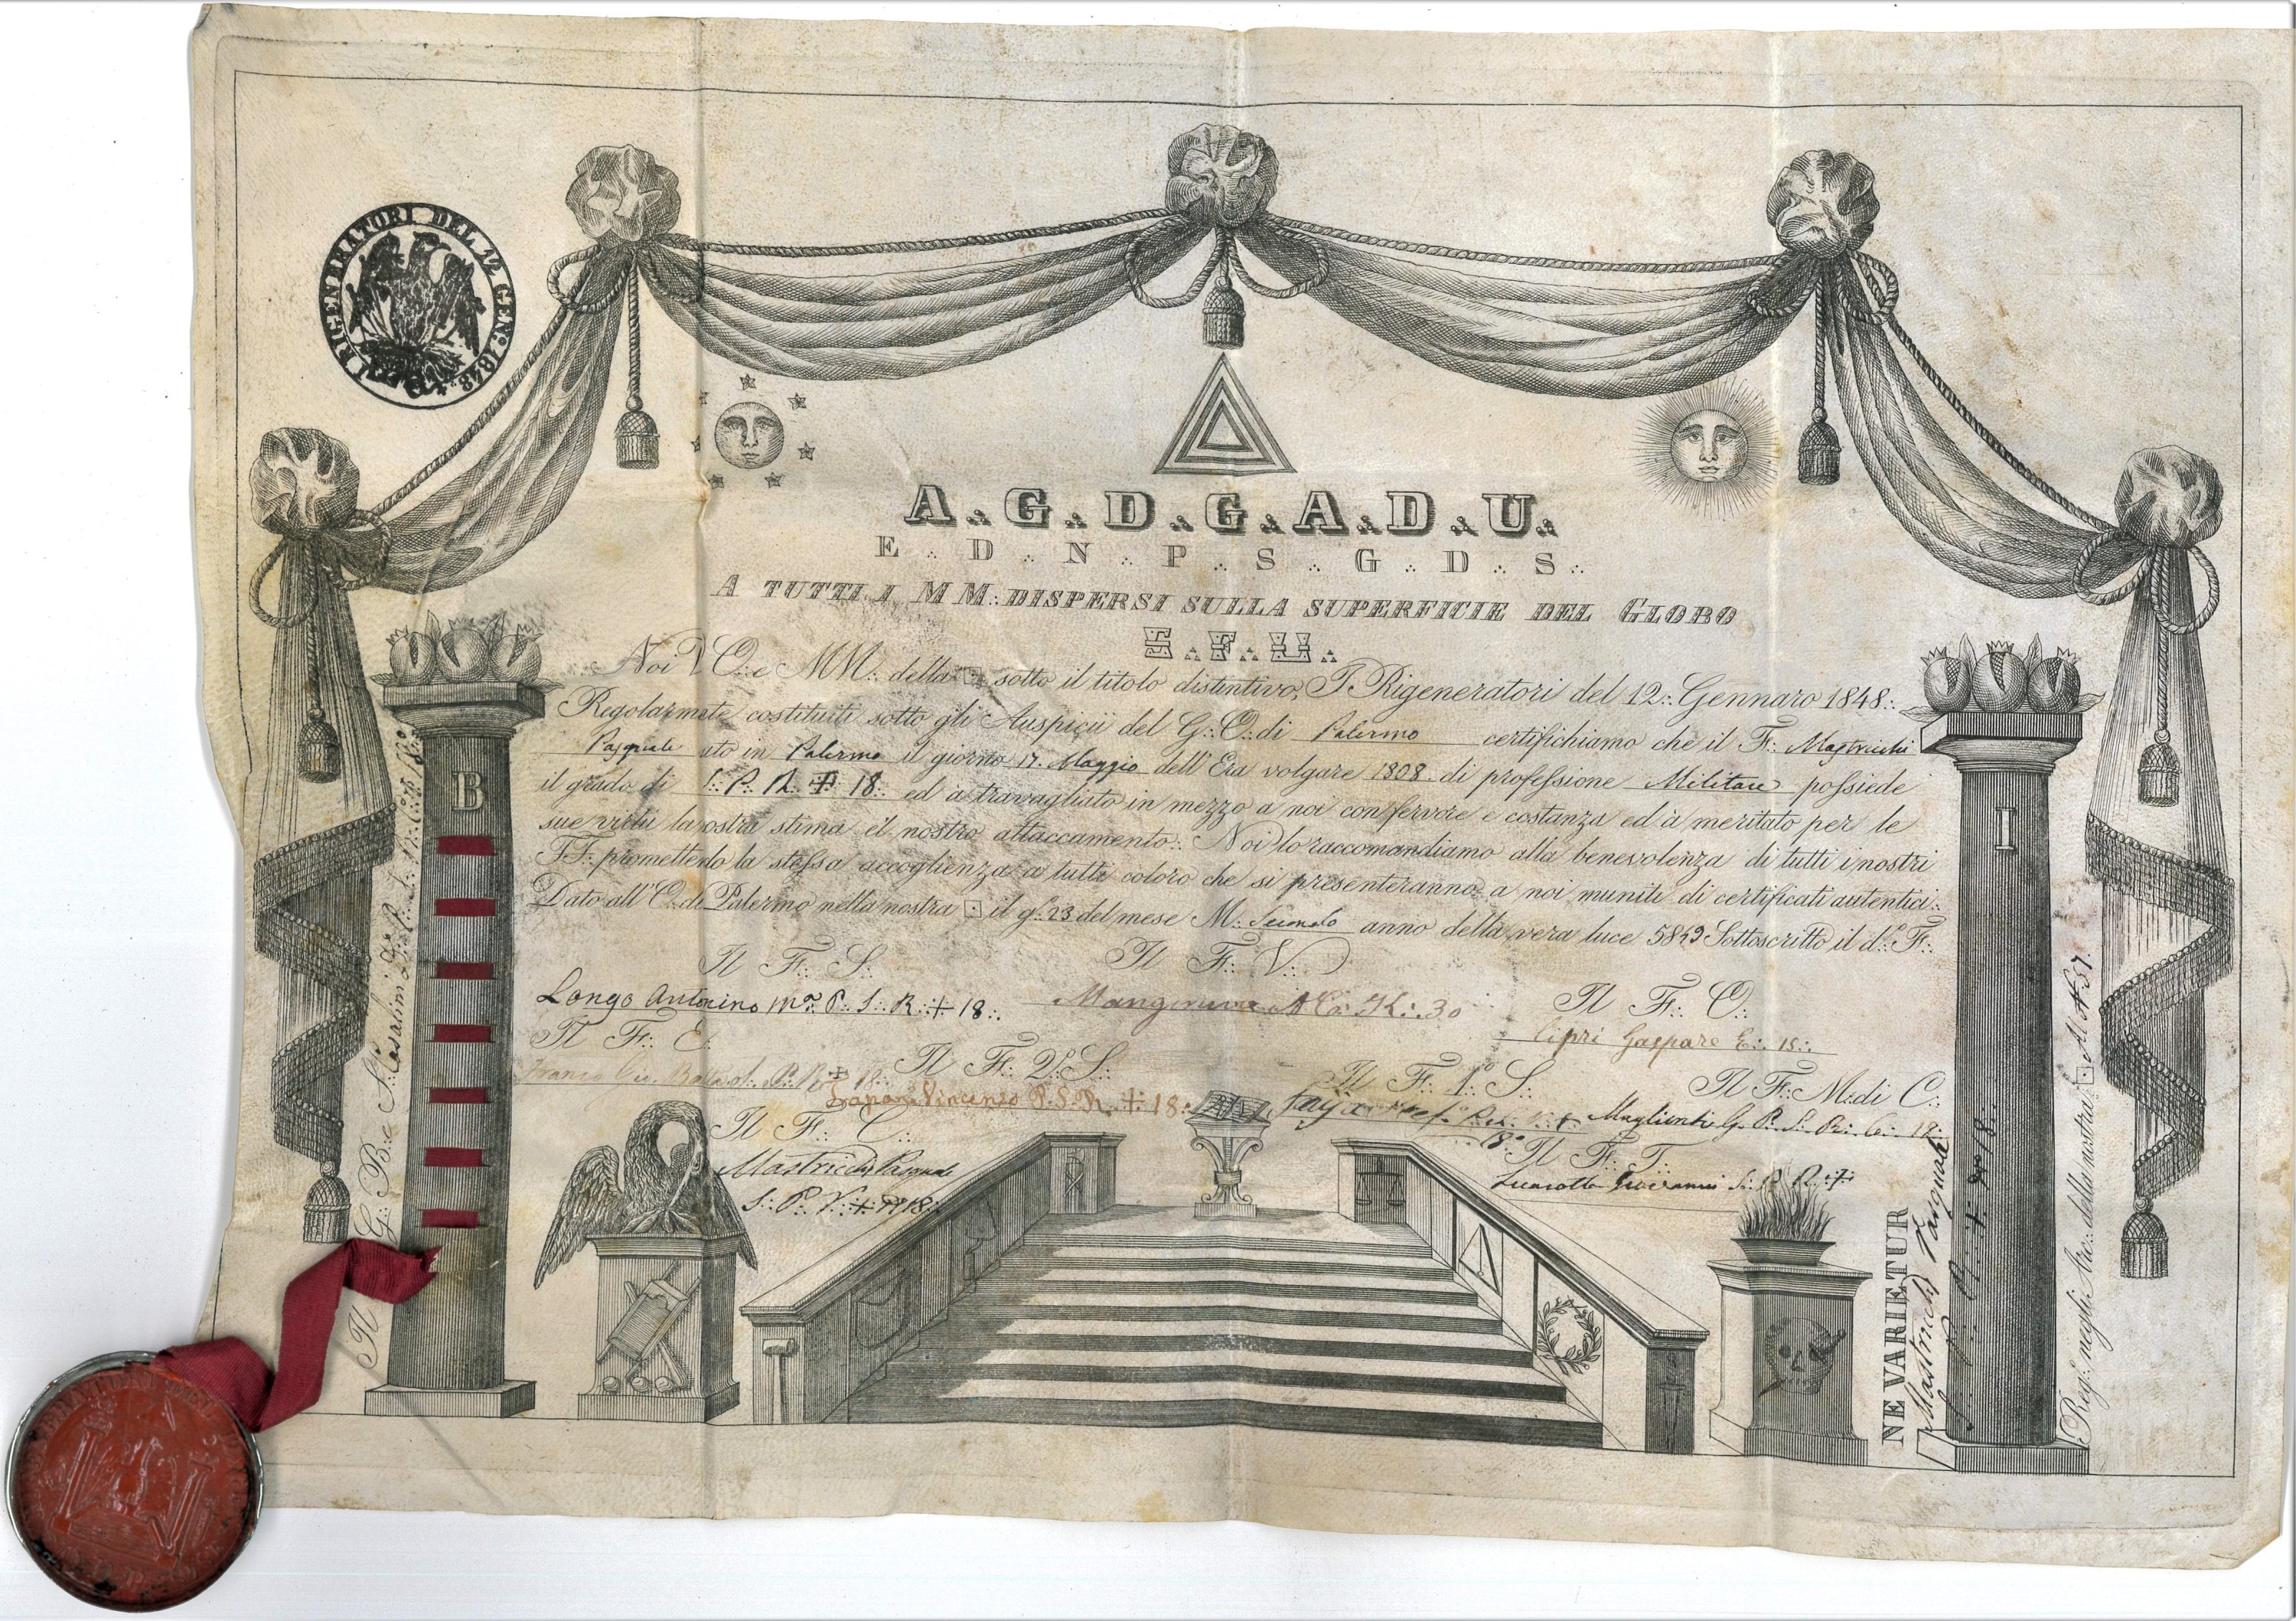 I RIGENERATORI DEL 12 GEN.º 1848
A.∴ G.∴ D.∴ G.∴ A.∴ D.∴ U.∴
E.∴ D.∴ N.∴ P.∴ S.∴ G.∴ D.∴ S.∴
A TUTTI I MM.∴ DISPERSI SULLA SUPERFICIE DEL GLOBO
S.∴ F.∴ U.∴
Noi V.O.∴ e MM.∴ della sotto il titolo distintivo, I Rigeneratori del 12.∴ Gennaro 1848.∴
Regolarmete costituiti sotto gli Auspicii del G.∴ O.∴ di Palermo certifichiamo che il F.∴ Mastricchi
Pasquale ato in Palermo il giorno 17. Maggio dell'Era volgare 1808. di professione Militare possiede
il grado di S.∴ P.∴ R.∴ ✝ 18.∴ ed à travagliato in mezzo a noi con fervore e costanza ed à meritato per le
sue virtù la ostra stima e il nostro attaccamento.∴ Noi lo raccomandiamo alla benevolenza di tutti i nostri
FF.∴ promettendo la stessa accoglienza a tutti coloro che si presenteranno a noi muniti di certificati autentici.∴
Dato all'O.∴ di Palermo nella nostra il g.º 23 del mese M.∴ Secondo anno della vera luce 5849 Sottoscritto il d.º F.∴
Il F.∴ S.∴
Il F.∴ V.∴
Longo Antonino M.º P.∴ S.∴ R.∴ ✝ 18.∴
K.∴ 30
Il F.∴ O.∴
Cipri Gaspare E.∴ 15.∴
Il F.∴ E.∴
Il F.∴ 2.º S.∴
Il F.∴ 1.º S.∴
Il F.∴ M.di C.∴
Franco Gio. Batta S.∴ P.∴ R.∴ ✝ 18.∴
Vincenzo P.∴ S.∴ R.∴ ✝ 18.∴
G.∴ P.∴ S.∴ R.∴ C.∴ 18.∴
Il F.∴ C.∴
Mastricchi Pasquale
S.∴ P.∴ V.∴ ✝ 18.∴
Il F.∴ T.∴
Giovanni S.∴ P.∴ R.∴ ✝
B
I
Il G.∴ B.∴ e S.∴
NE VARIETUR
Mastricchi Pasquale
Reg.∴ negli Arc.∴ della nostra al N 57.